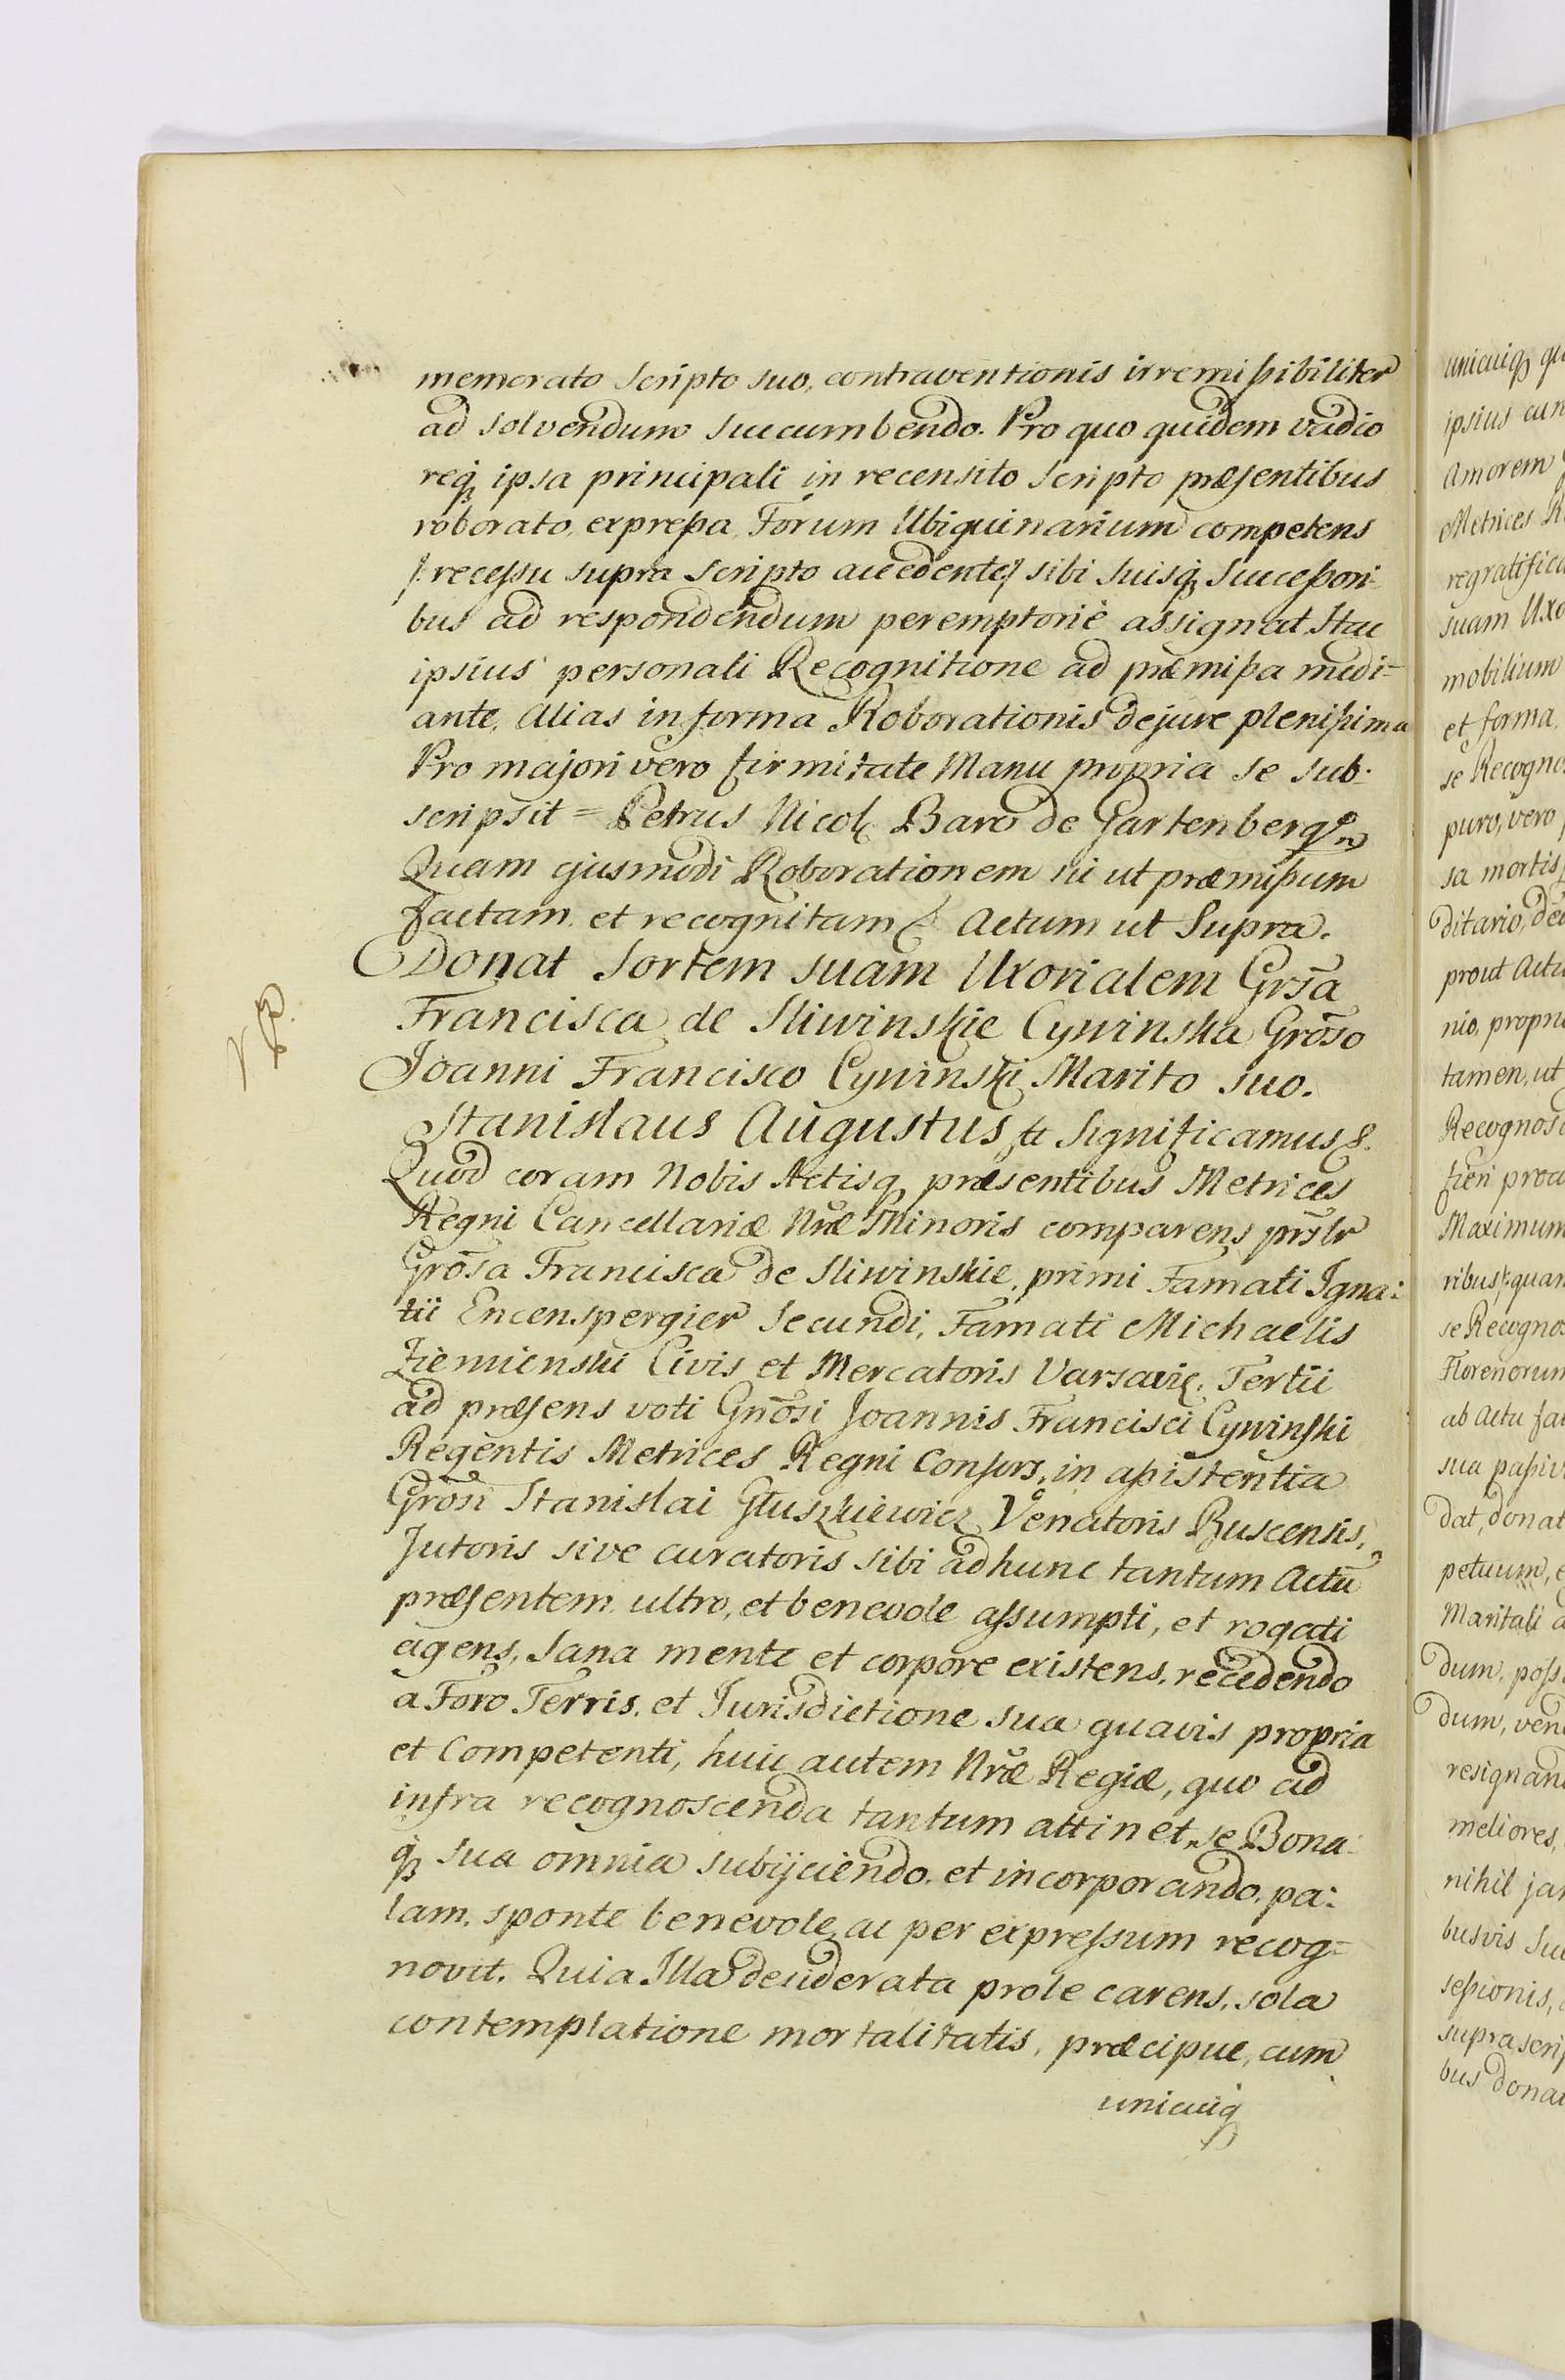 memorato Scripto suo, contraventionis irremissibiliter
ad solvendum succumbendo. Pro quo quidem vadio
reqꝫ ipsa principali in recensito Scripto præsentibus
roborato, expressa, Forum Ubiquinarium competens
/: recessu supra scripto accedente :/ sibi suisqꝫ Successori-
bus ad respondendum peremptoriè assignat. Hac
ipsius personali Recognitione ad præmissa medi-
ante, alias in forma Roborationis de jure plenissima
Pro majori vero firmitate Manu propria se sub-
scripsit = Petrus Nicol. Baro de Gartenberg
Quam ejusmodi Roborationem sic ut præmissum
factam et recognitam & Actum ut Supra.
Donat Sortem suam Uxorialem Grsa
Francisca de Sliwinskie Cywinska Groso
Joanni Francisco Cywinski Marito suo.
Stanislaus Augustus & Significamus &.
Quod coram Nobis Actisq præsentibus Metrices
Regni Cancellariæ Nræ Minoris comparens prslr
Grosa Francisca de Sliwinskie, primi Famati Igna:
tii Encenspergier Secundi, Famati Michaelis
Ziemienski Civis et Mercatoris Varsavię. Tertii
ad præsens voti Gnosi Joannis Francisci Cywinski
Regentis Metrices Regni Consors, in assistentia
Grosi Stanislai Głuszkiewicz Venatoris Buscensis,
Tutoris sive curatoris sibi ad hunc tantum Actū
præsentem, ultro, et benevole assumpti, et rogati
agens, Sana mente et corpore existens, recedendo
a Foro Terris, et Jurisdictione sua quavis propria
et Competenti, huic autem Nræ Regiæ, quo ad
infra recognoscenda tantum attinet, se Bona:
qꝫ sua omnia subijciendo, et incorporando, pa:
lam, sponte benevole, ac per expressum recog-
novit. Quia Illa desiderata prole carens, sola
contemplatione mortalitatis, præcipue, cum
unicuiq
unicuiqꝫ
ipsius
Amorem
Metrices
suam
mobilium
et forma
se
puro, vero
sa mortis
ditario,
prout
nio,
tamen, ut
fieri
Maximum
ribus
se
Florenorum
ab Actu
sua
dat, donat
petuum,
Maritali
dum,
dum,
meliores,
nihil
busvis
sessionis,
bus